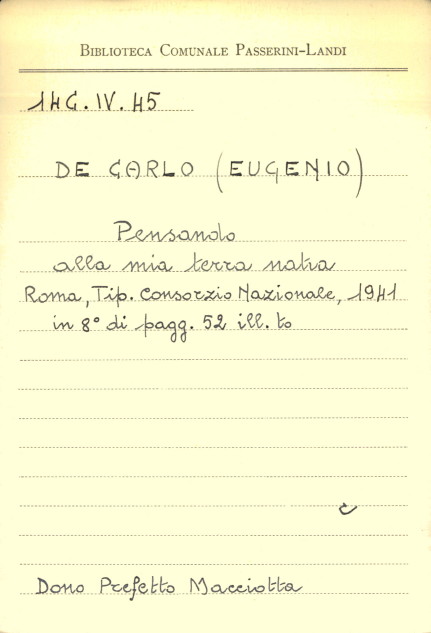 BIBLIOTECA COMUNALE PASSERINI-LANDI
14C.IV.45
DE CARLO (EUGENIO)
Pensando
alla mia terra natia
Roma, Tip. Consorzio Nazionale, 1941
in 8° di pagg. 52 ill. to
c
Dono Prefetto Macciotta